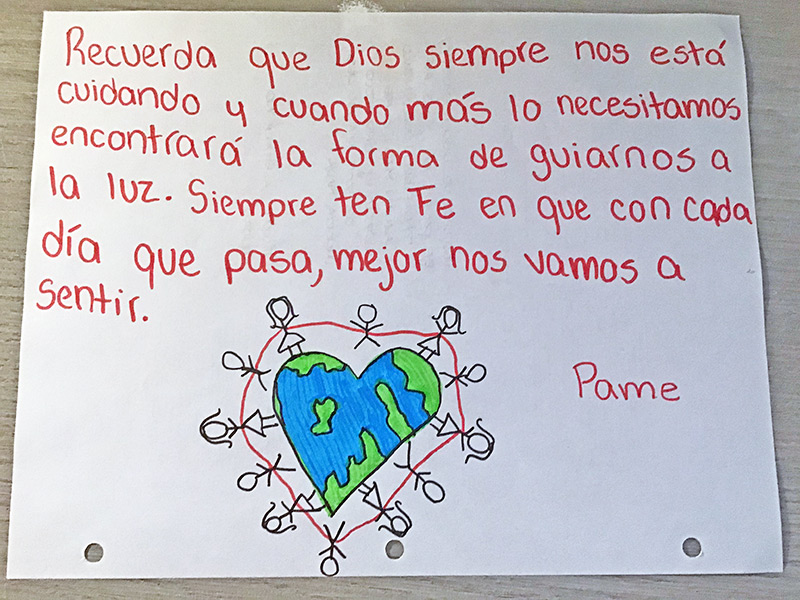 Recuerda que Dios siempre nos está
cuidando y cuando más lo necesitamos
encontrará la forma de guiarnos a
la luz. Siempre ten Fe en que con cada
día que pasa, mejor nos vamos a
sentir.
Pame